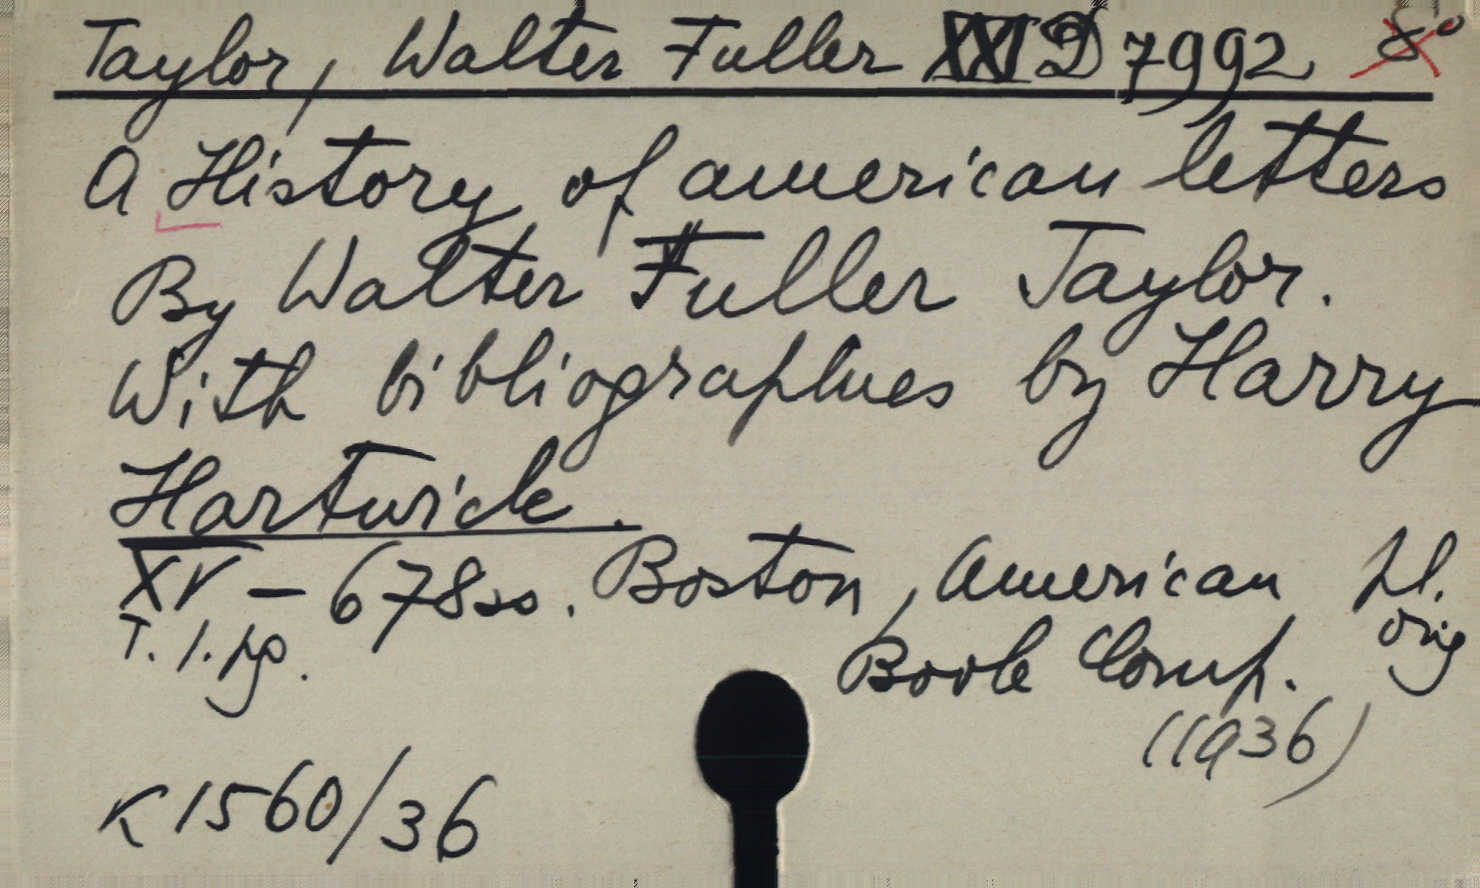 Taylor, Walter Fuller XXI D 7992 8°
A History of american letters
By Walter Fuller Taylor.
With bibliographies by Harry
Hartwick.
XV – 678 ss. Boston, American
Book Comp.
T. 1. pg.
orig
(1936)
K 1560/36